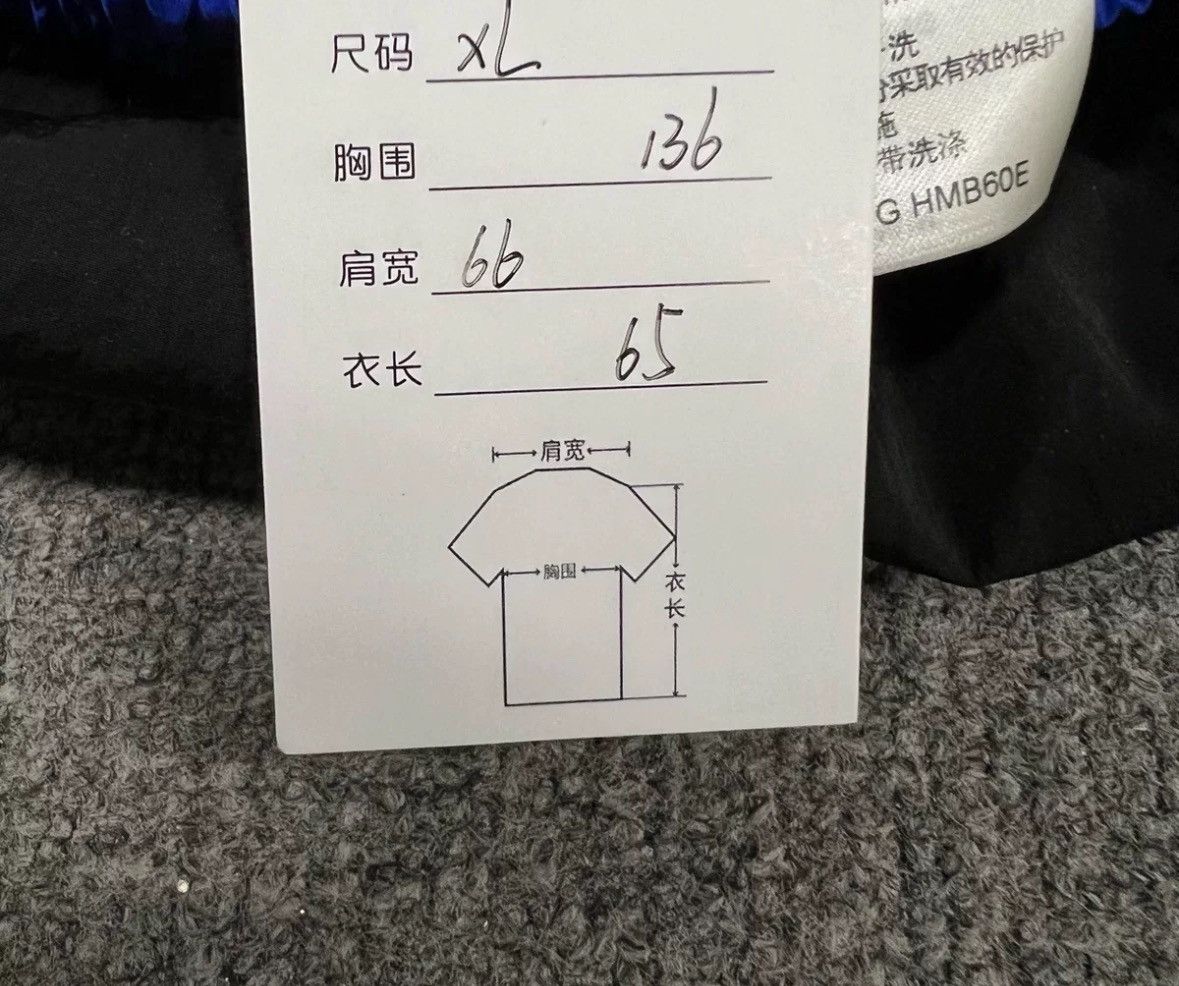 尺码 XL
胸围 136
肩宽 66
衣长 65
肩宽
胸围
衣长
洗
采取有效的保护
施
带洗涤
G HMB60E